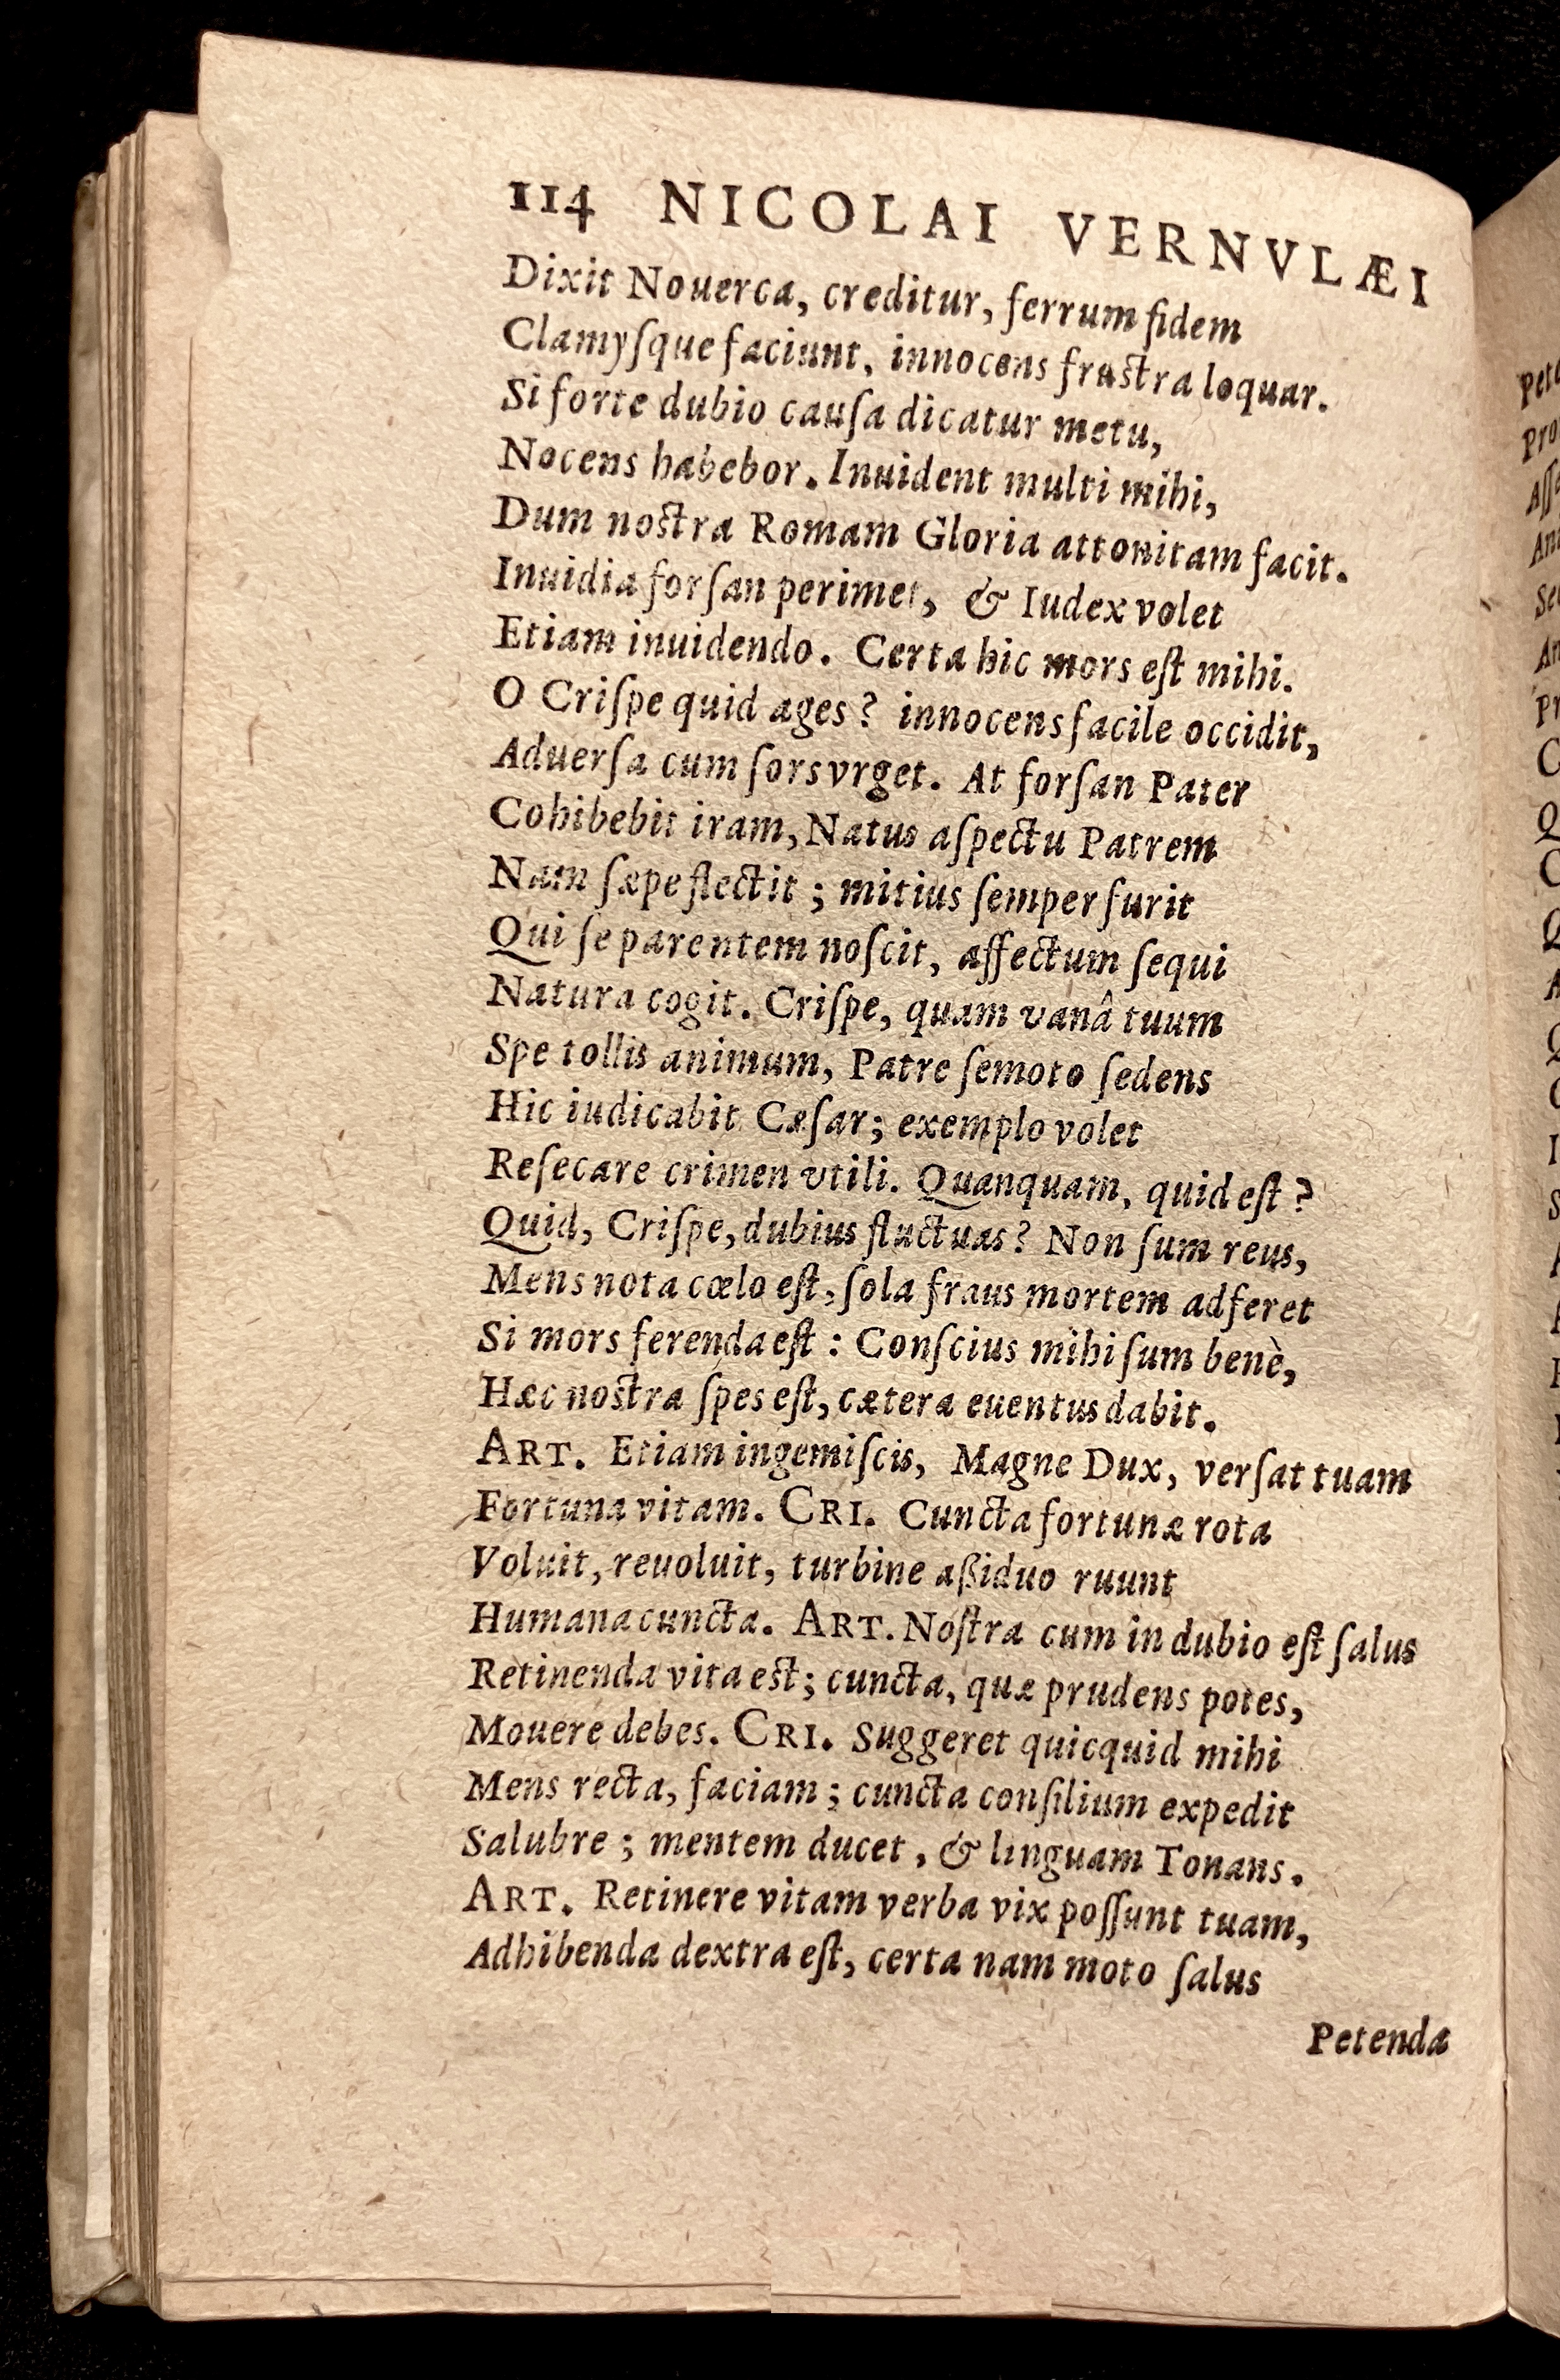 114 NICOLAI VERNVLÆI
Dixit Nouerca, creditur, ferrum fidem
Clamyſque faciunt, innocens fruſtra loquar.
Si forte dubio cauſa dicatur metu,
Nocens habebor. Inuident multi mihi,
Dum noſtra Romam Gloria attonitam facit.
Inuidia forſan perimet, & Iudex volet
Etiam inuidendo. Certa hic mors eſt mihi.
O Criſpe quid ages? innocens facile occidit,
Aduerſa cum ſors vrget. At forſan Pater
Cohibebit iram, Natus aſpectu Patrem
Nam ſæpe flectit; mitius ſemper furit
Qui ſe parentem noſcit, affectum ſequi
Natura cogit. Criſpe, quam vanâ tuum
Spe tollis animum, Patre ſemoto ſedens
Hic iudicabit Cæſar; exemplo volet
Reſecare crimen vtili. Quanquam, quid eſt?
Quid, Criſpe, dubius fluctuas? Non ſum reus,
Mens nota cœlo eſt, ſola fraus mortem adferet
Si mors ferenda eſt: Conſcius mihi ſum benè,
Hæc noſtra ſpes eſt, cætera euentus dabit.
ART. Etiam ingemiſcis, Magne Dux, verſat tuam
Fortuna vitam. CRI. Cuncta fortunæ rota
Voluit, reuoluit, turbine aßiduo ruunt
Humana cuncta. ART. Noſtra cum in dubio eſt ſalus
Retinenda vita eſt; cuncta, quæ prudens potes,
Mouere debes. CRI. Suggeret quicquid mihi
Mens recta, faciam; cuncta conſilium expedit
Salubre; mentem ducet, & linguam Tonans.
ART. Retinere vitam verba vix poſſunt tuam,
Adhibenda dextra eſt, certa nam moto ſalus
Petenda